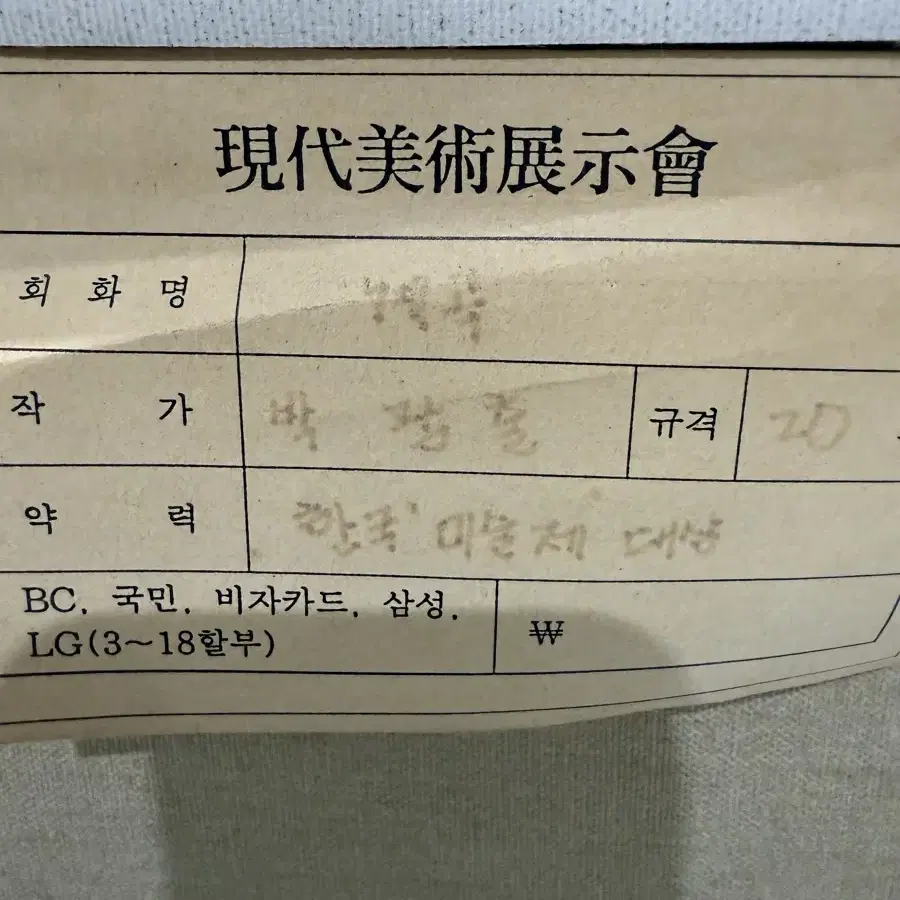 現代美術展示會
회 화 명
작 가 박 규격 20
약 력 한국 미술제 대상
BC. 국민. 비자카드. 삼성.
LG(3~18할부)
₩